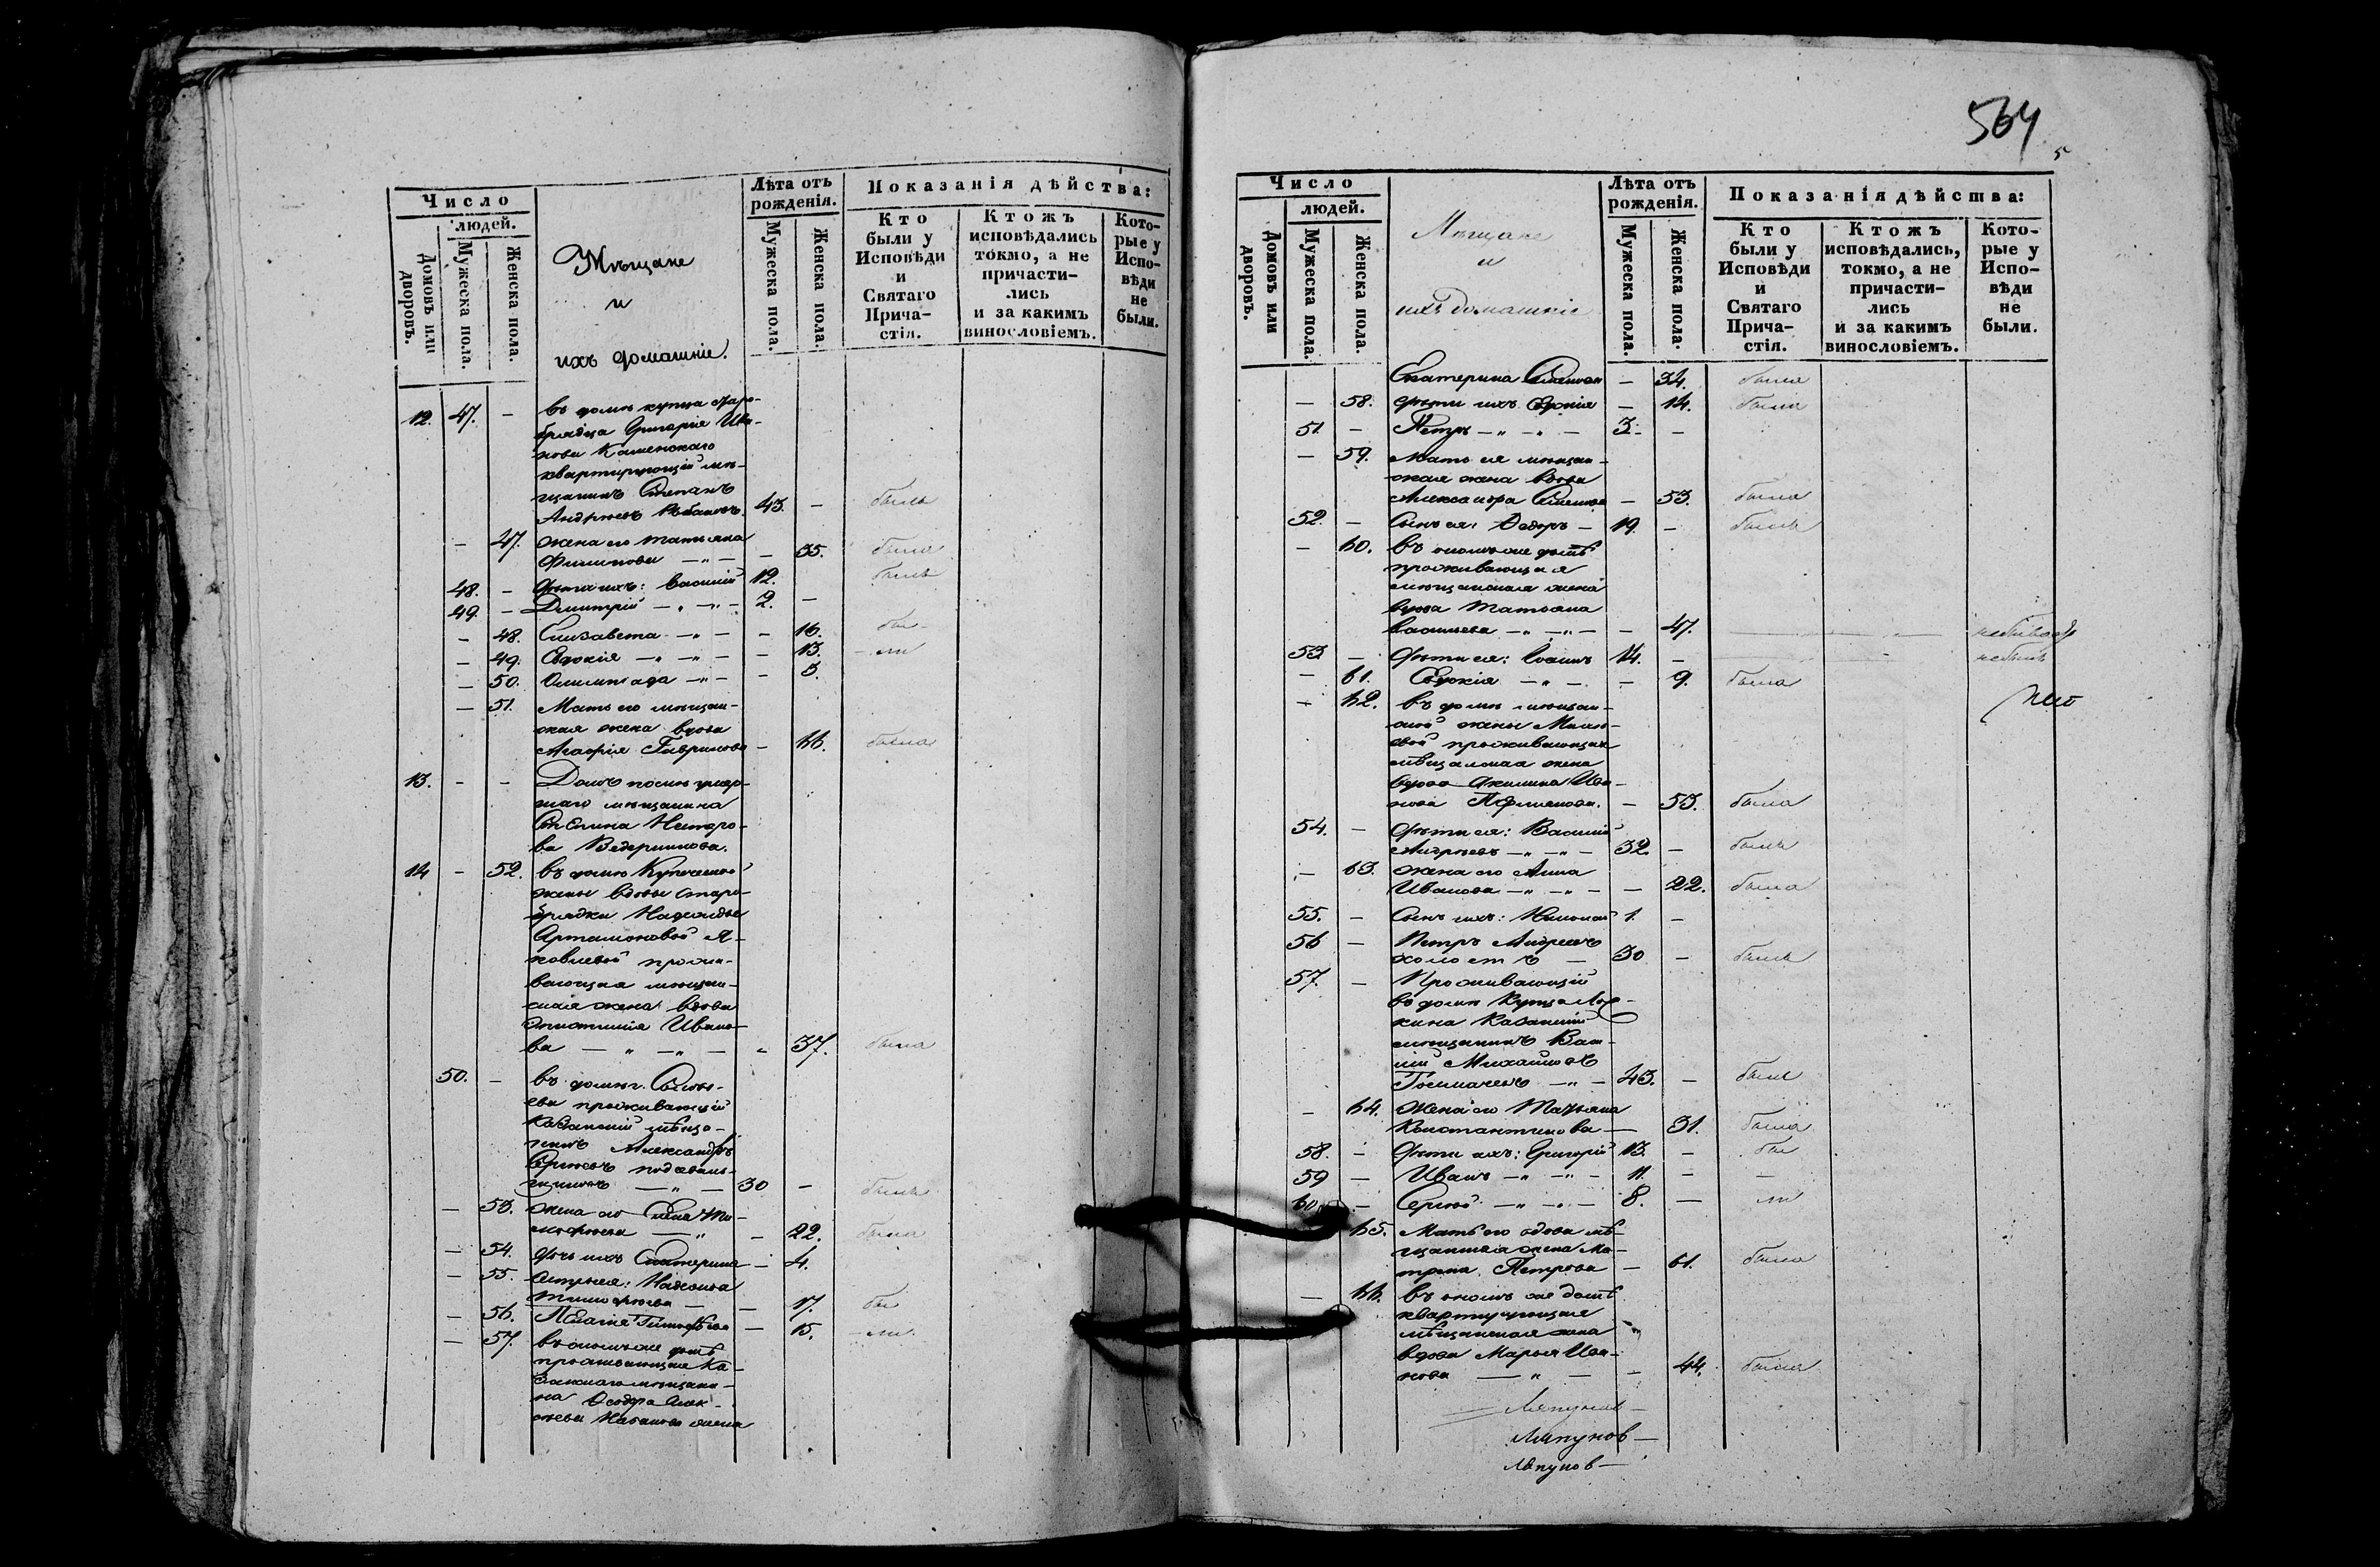 Число
людей.
Домовъ или дворовъ.
Мужеска пола.
Женска пола.
Мѣщане
и
ихъ домашніе.
Лѣта отъ рожденія.
Мужеска пола.
Женска пола.
Показанія дѣйства:
Кто были у Исповѣди и Святаго Прича-стія.
Ктожъ исповѣдались токмо, а не причасти-лись и за какимъ винословіемъ.
Кото-рые у Испо-вѣди не были.
12. 47. — въ домѣ купца старо-
брядца Григорія Ива-
нова Каменскаго
квартирующій мѣ-
щанинъ Степанъ
Андреевъ 43. — былъ
— 47. жена его Татьяна
Филипова — „ — — 35. была
48. — дѣти ихъ: Василій 12. былъ
49. — Димитрій — „ — „ — 2. —
— 48. Елизавета — „ — — 16. бы-
— 49. Евдокія — „ — „ — — 13. — ли
— 50. Олимпіада — „ — — 3.
— 51. Мать его мѣщан-
ская жена вдова
Агафія Гаврилова — 66. была
13. — — Домъ послѣ умер-
шаго мѣщанина
Нестеро-
ва Ведерникова.
14 — 52. въ домѣ Купеческой
жены вдовы старо-
брядки Надежды
Артамоновой Я-
ковлевой прожи-
вающая мѣщан-
ская жена вдова
Ивано-
ва — „ — „ — 37. была
50. — въ домѣ г.
проживающій
Казанскій мѣща-
нинъ Александръ
Сергѣевъ
— „ — 30 — былъ
— 53. жена его Елена Ти-
мофеева — „ — 22. была
— 54. дочь ихъ Екатерина — 4.
— 55. сестры ея: Надежда
Тимофеева — — 17. бы
— 56. Пелагія Тимофѣева — 15. — ли.
— 57. въ ономъ же домѣ
проживающая Ка-
занскаго мѣщани-
на Ѳеодора Алек-
сѣева жена
564
5
Число
людей.
Домовъ или дворовъ.
Мужеска пола.
Женска пола.
Мѣщане
и
ихъ домашніе
Лѣта отъ рожденія.
Мужеска пола.
Женска пола.
Показанія дѣйства:
Кто были у Исповѣди и Святаго Прича-стія.
Ктожъ исповѣдались, токмо, а не причасти-лись и за какимъ винословіемъ.
Кото-рые у Испо-вѣди не были.
Екатерина — 34. была
— 58. дѣти ихъ Евдокія — 14. была
51 — Петръ — „ — „ — 3. —
— 59. Мать ея мѣщан-
ская жена вдова
Александра — 53. была
52. — Сынъ ея: Ѳедоръ — 19. — былъ
— 60. въ ономъ же домѣ
проживающая
мѣщанская жена
вдова Татьяна
Васильева — „ — „ — — 47.
53 — дѣти ея: Іоаннъ 14. — не былъ
— 61. Евдокія — „ — — 9. была
— 62. въ домѣ мѣщан-
ской жены
проживающая
мѣщанская жена
вдова Акилина Ива-
нова — 53. была
54. — дѣти ея: Василій
Андреевъ — „ — „ — 32. — былъ
— 63. жена его Анна
Иванова — „ — „ — — 22. была
55. — Сынъ ихъ: Николай 1. —
56 — Петръ Андреевъ
холостъ — 30 — былъ
57. — Проживающій
въ домѣ Купца
Казанскій
мѣщанинъ Васи-
лій Михайловъ
— „ — 43. — былъ
— 64. Жена его Татьяна
Константинова — 31. была
58. — дѣти ихъ: Григорій 13. — бы
59 — Иванъ — „ — „ — 11. — —
60 — Сергѣй — „ — „ — 8. — ли
65. Мать его вдова мѣ-
щанская жена Ма-
трена Петрова — 61. была
— 66. въ ономъ же домѣ
квартирующая
мѣщанская жена
вдова Марья Ива-
нова — „ — — 44. была
Ляпунов —
Ляпунов —